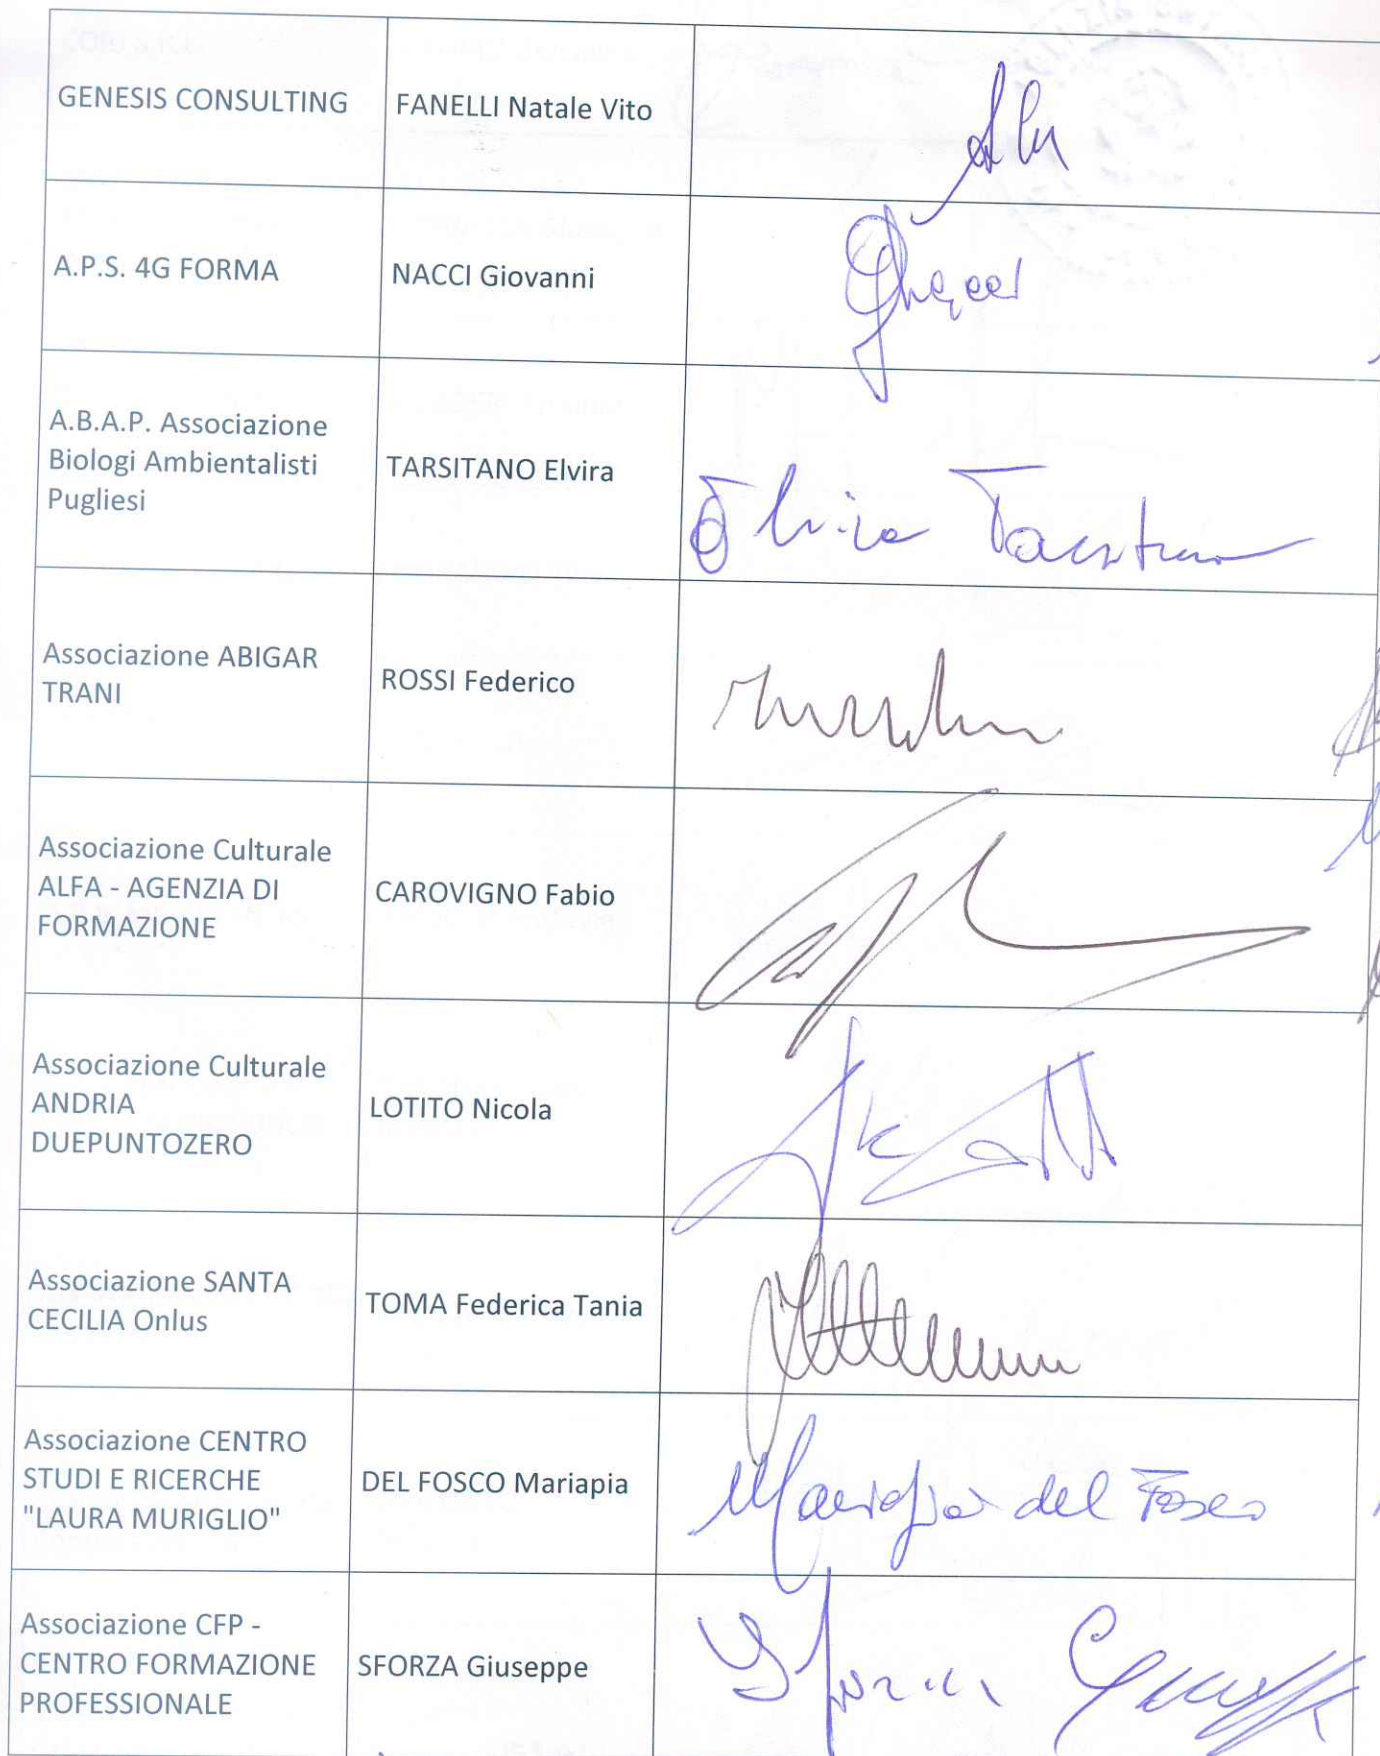 GENESIS CONSULTING
FANELLI Natale Vito
A.P.S. 4G FORMA
NACCI Giovanni
A.B.A.P. Associazione
Biologi Ambientalisti
Pugliesi
TARSITANO Elvira
Elvira Tarsitano
Associazione ABIGAR
TRANI
ROSSI Federico
Associazione Culturale
ALFA - AGENZIA DI
FORMAZIONE
CAROVIGNO Fabio
Associazione Culturale
ANDRIA
DUEPUNTOZERO
LOTITO Nicola
Associazione SANTA
CECILIA Onlus
TOMA Federica Tania
Associazione CENTRO
STUDI E RICERCHE
"LAURA MURIGLIO"
DEL FOSCO Mariapia
Mariapia del Fosco
Associazione CFP -
CENTRO FORMAZIONE
PROFESSIONALE
SFORZA Giuseppe
Sforza Giuseppe